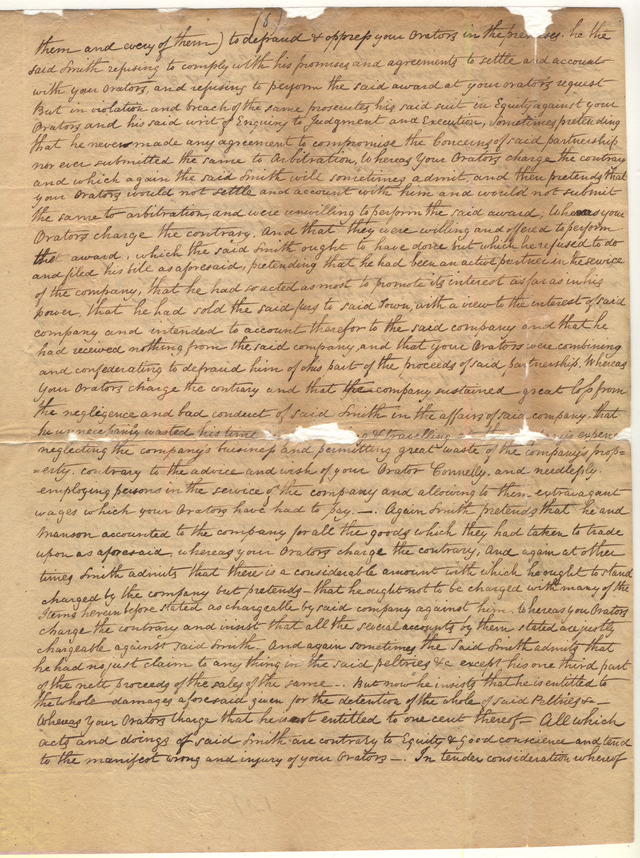 (8)
them and every of them) to defraud & oppress your Orators in the premises. he the
said Smith refusing to comply with his promises and agreements to settle and account
with your Orators, and refusing to perform the said award at your orators request
But in violation and breach of the same prosecutes his said suit in Equity against your
Orators and his said writ of Enquiry to Judgment and Execution, Sometimes pretending
that he never made any agreement to compromise the Concerns of said partnership
nor ever submitted the same to Arbitration, Whereas Your Orators charge the contrary
and which again the said Smith will sometimes admit, and then pretends that
your Orators would not settle and account with him and would not submit
the same to arbitration, and were unwilling to perform the said award, Whereas your
Orators charge the contrary. And that they were willing and offered to perform
the award, which the said Smith ought to have done but which he refused to do
and filed his bile as aforesaid, pretending that he had been an active partner in the service
of the company, that he had so acted as most to promote its interest as far as in his
power, that he had sold the said furs to said Town, with a view to the interest of said
company and intended to account therefor to the said company and that he
had received nothing from the said company and that your Orators were combining
and confederating to defraud him of his part of the proceeds of said partnership. Whereas
Your Orators charge the contrary and that the company sustained great loss from
the negligence and bad conduct of said Smith in the affairs of said company. that
he unnecessarily wasted his time & travelling expence
neglecting the company's business and permitting great waste of the company's prop=
=erty. contrary to the advice and wish of your Orator Connelly. and needlessly
employing persons in the service of the company and allowing to them extravagant
wages which your Orators have had to pay. —. Again Smith pretends that he and
Manson accounted to the company for all the goods which they had taken to trade
upon as aforesaid, whereas your Orators charge the contrary, And again at other
times Smith admits that there is a considerable amount with which he ought to stand
charged by the company but pretends – that he ought not to be charged with many of the
Items herein before stated as chargeable by said company against him. Whereas you Orators
charge the contrary and insist that all the several accounts by them stated are justly
chargeable against said Smith. And again sometimes the Said Smith admits that
he had no just claim to any thing in the said peltries &c except his one third part
of the nett proceeds of the sales of the same. . But now he insists that he is entitled to
the whole damages aforesaid given for the detention of the whole of said Peltries &c –
Whereas Your Orators charge that he is not entitled to one cent thereof – All which
acts and doings of said Smith are contrary to Equity & Good conscience and tend
to the manifest wrong and injury of your Orators —. In tender consideration whereof